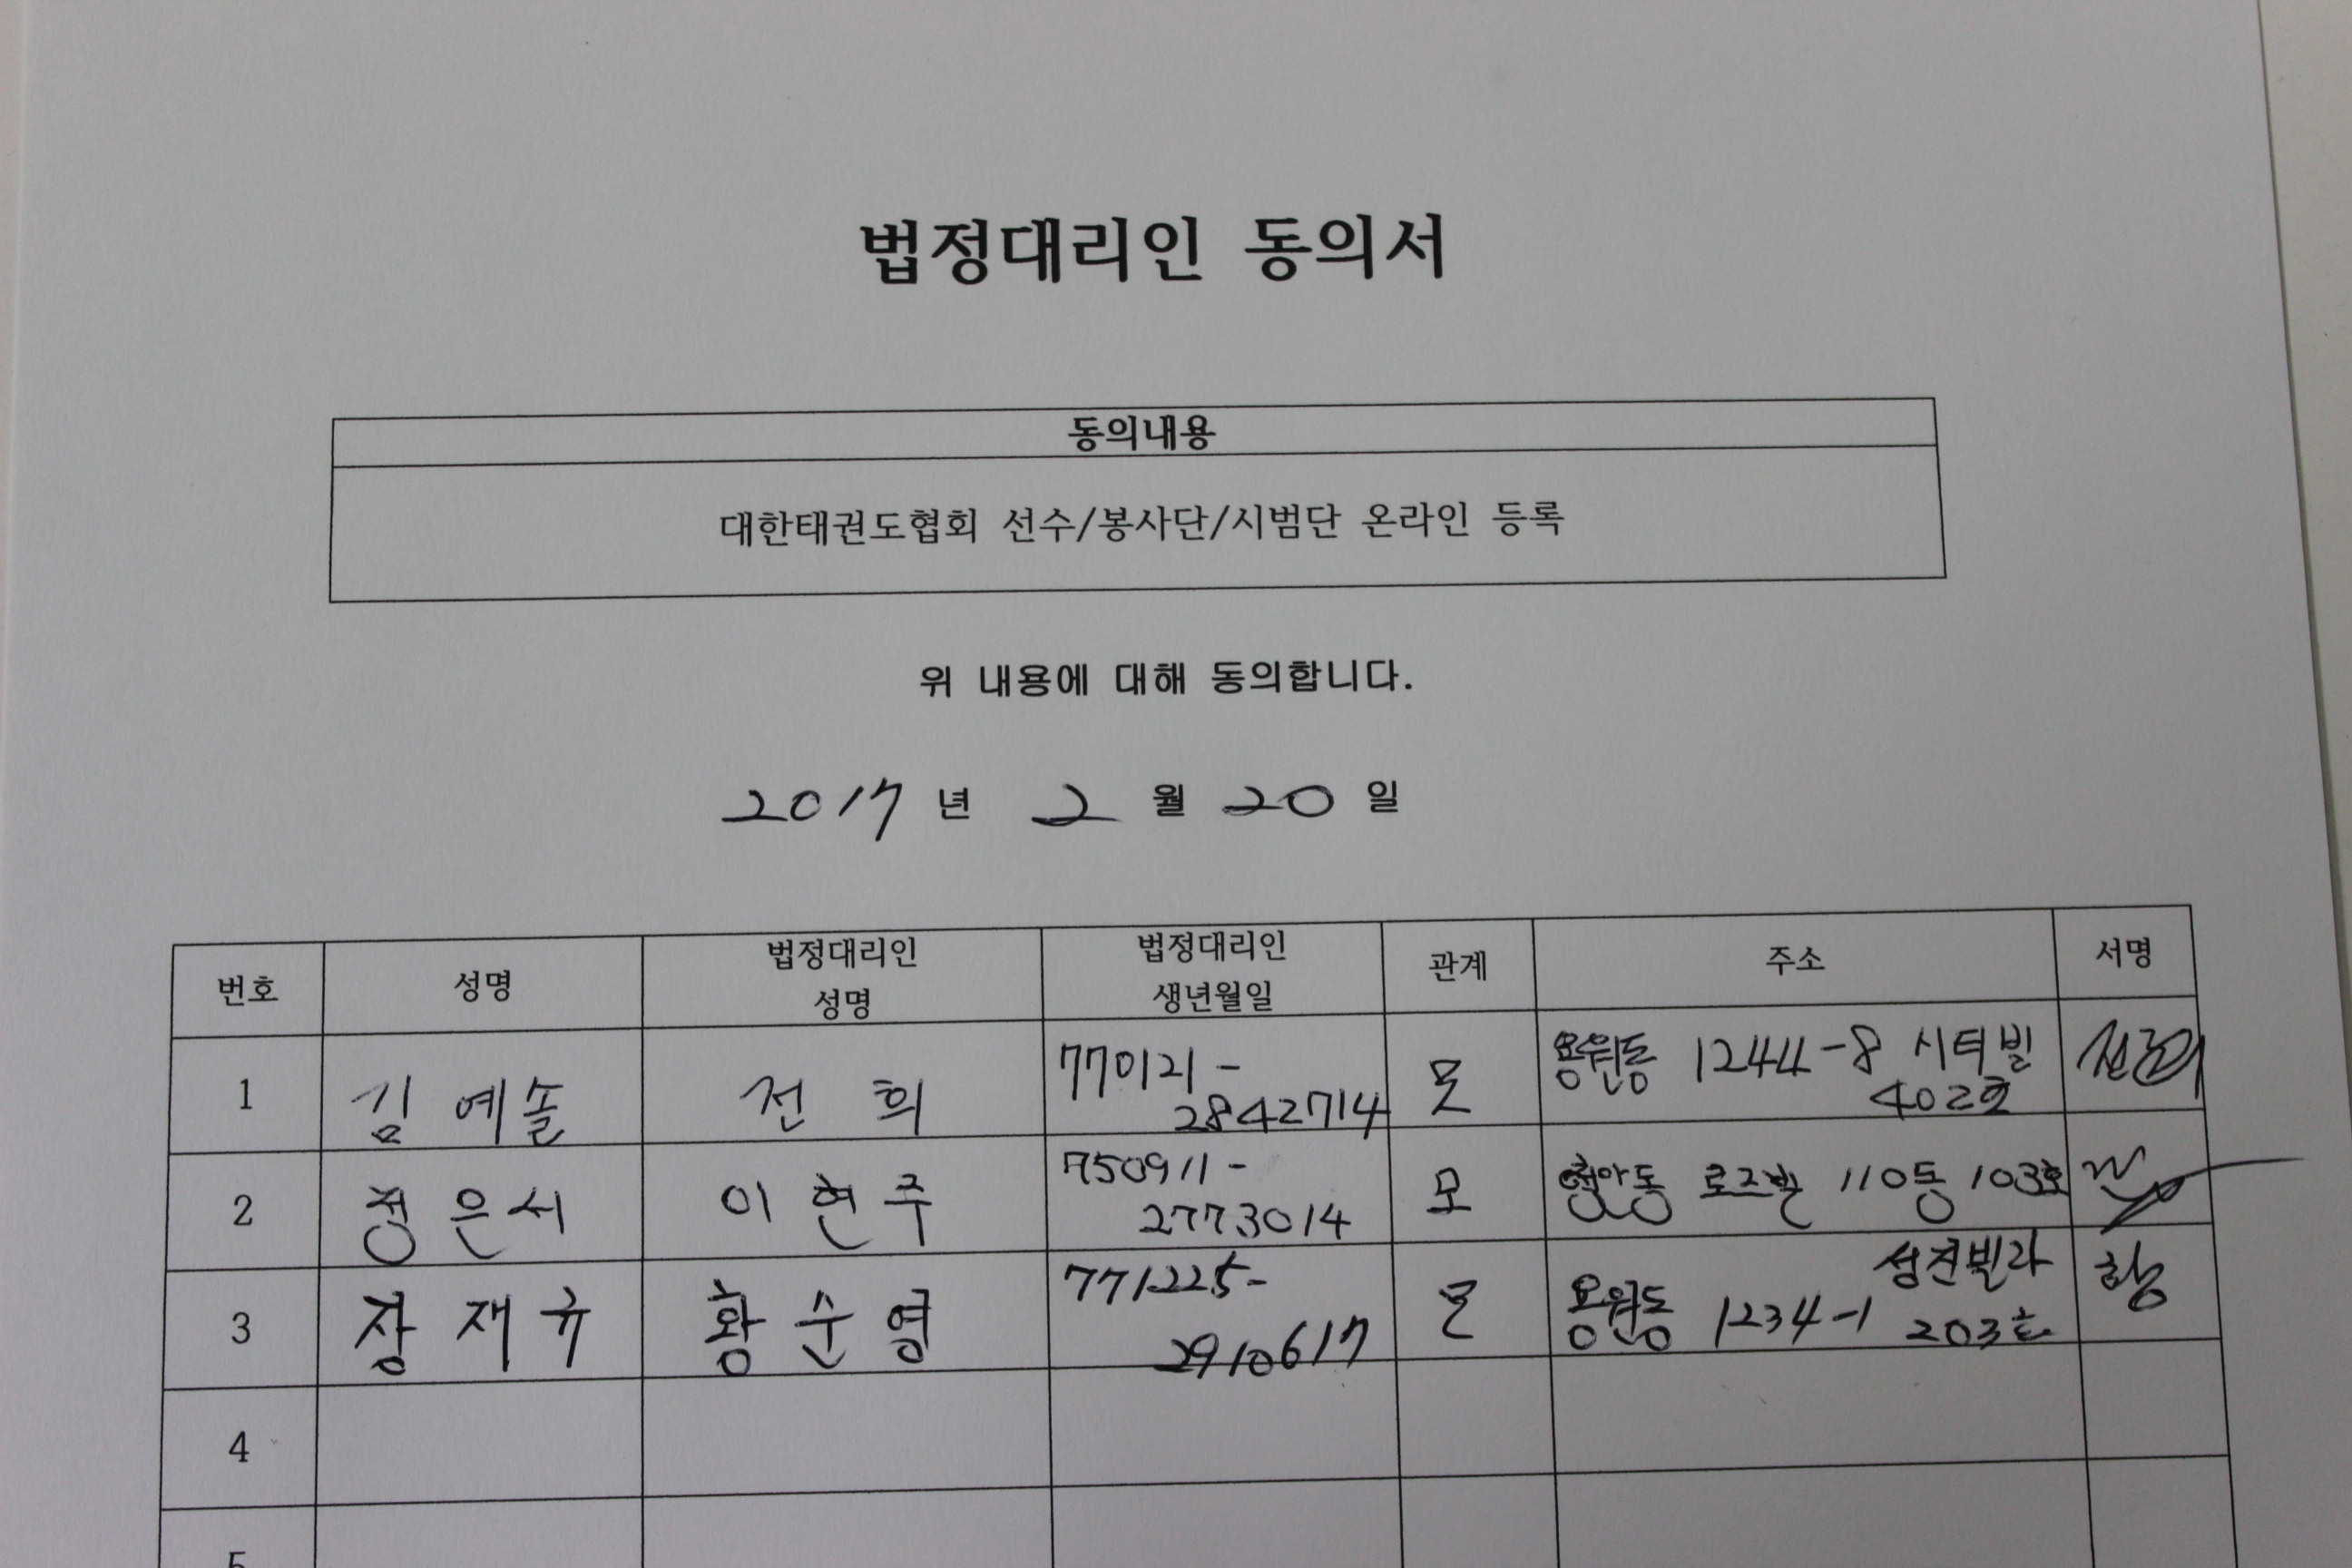 법정대리인 동의서
동의내용
대한태권도협회 선수/봉사단/시범단 온라인 등록
위 내용에 대해 동의합니다.
2017 년 2 월 20 일
번호 성명 법정대리인 성명 법정대리인 생년월일 관계 주소 서명
1 김예솔 전희 770121- 2842714 모 용원동 1244-8 시티빌 402호
2 정은서 이현주 750911- 2773014 모 청안동 로즈빌 110동 103호
3 장재규 황순영 771225- 2910617 모 용원동 1234-1 203호
4
5